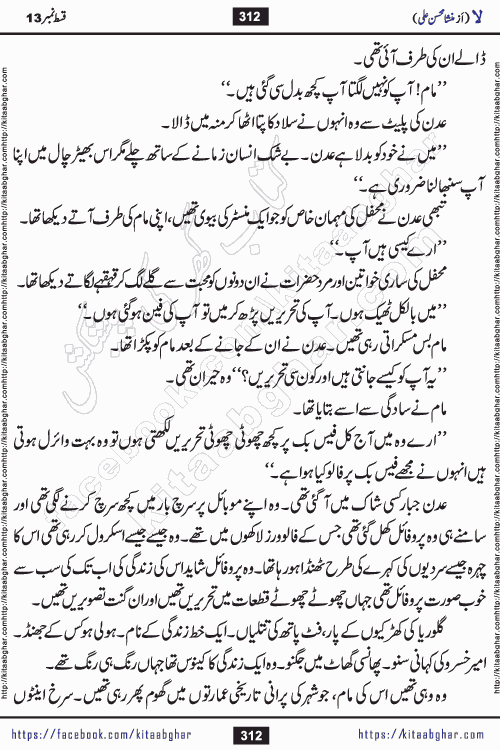 لا (از منشا محسن علی)
312
قسط نمبر 13
ڈالے ان کی طرف آئی تھی۔
’’مام! آپ کو نہیں لگتا آپ کچھ بدل سی گئی ہیں۔‘‘
عدن کی پلیٹ سے وہ انہوں نے سلاد کا پتا اٹھا کر منہ میں ڈالا۔
’’میں نے خود کو بدلا ہے عدن۔ بے شک انسان زمانے کے ساتھ چلے مگر اس بھیڑ چال میں اپنا
آپ سنبھالنا ضروری ہے۔‘‘
تبھی عدن نے محفل کی مہمان خاص کو جو ایک منسٹر کی بیوی تھیں، اپنی مام کی طرف آتے دیکھا تھا۔
’’ارے کیسی ہیں آپ۔‘‘
محفل کی ساری خواتین اور مرد حضرات نے ان دونوں کو محبت سے گلے لگ کر قہقہے لگاتے دیکھا تھا۔
’’میں بالکل ٹھیک ہوں۔ آپ کی تحریریں پڑھ کر میں تو آپ کی فین ہو گئی ہوں۔‘‘
مام بس مسکراتی رہی تھیں۔ عدن نے ان کے جانے کے بعد مام کو پکڑا تھا۔
’’یہ آپ کو کیسے جانتی ہیں اور کون سی تحریریں؟‘‘ وہ حیران تھی۔
مام نے سادگی سے اسے بتایا تھا۔
’’ارے وہ میں آج کل فیس بک پر کچھ چھوٹی چھوٹی تحریریں لکھتی ہوں تو وہ بہت وائرل ہوتی
ہیں انہوں نے مجھے فیس بک پر فالو کیا ہوا ہے۔‘‘
عدن جبار کسی شاک میں آ گئی تھی۔ وہ اپنے موبائل پر سرچ بار میں کچھ سرچ کرنے لگی تھی اور
سامنے ہی وہ پروفائل کھل گئی تھی جس کے فالوورز لاکھوں میں تھے۔ وہ جیسے جیسے اسکرول کر رہی تھی اس کا
چہرہ جیسے سردیوں کی کہرے کی طرح ٹھنڈا ہو رہا تھا۔ وہ پروفائل شاید اس کی زندگی کی اب تک کی سب سے
خوب صورت پروفائل تھی جہاں چھوٹے چھوٹے قطعات میں تحریریں تھیں اور ان گنت تصویریں تھیں۔
گلوریا کی کھڑکیوں کے پار، فٹ پاتھ کی تتلیاں۔ ایک خط زندگی کے نام۔ ہولی ہوکس کے جھنڈ۔
امیر خسرو کی کہانی سنو۔ پھانسی گھاٹ میں جگنو۔ وہ ایک زندگی کا کینوس تھا جہاں رنگ ہی رنگ تھے۔
وہ وہی تھیں اس کی مام، جو شہر کی پرانی تاریخی عمارتوں میں گھوم پھر رہی تھیں۔ سرخ اینٹوں
https://facebook.com/kitaabghar
312
https://kitaabghar.com